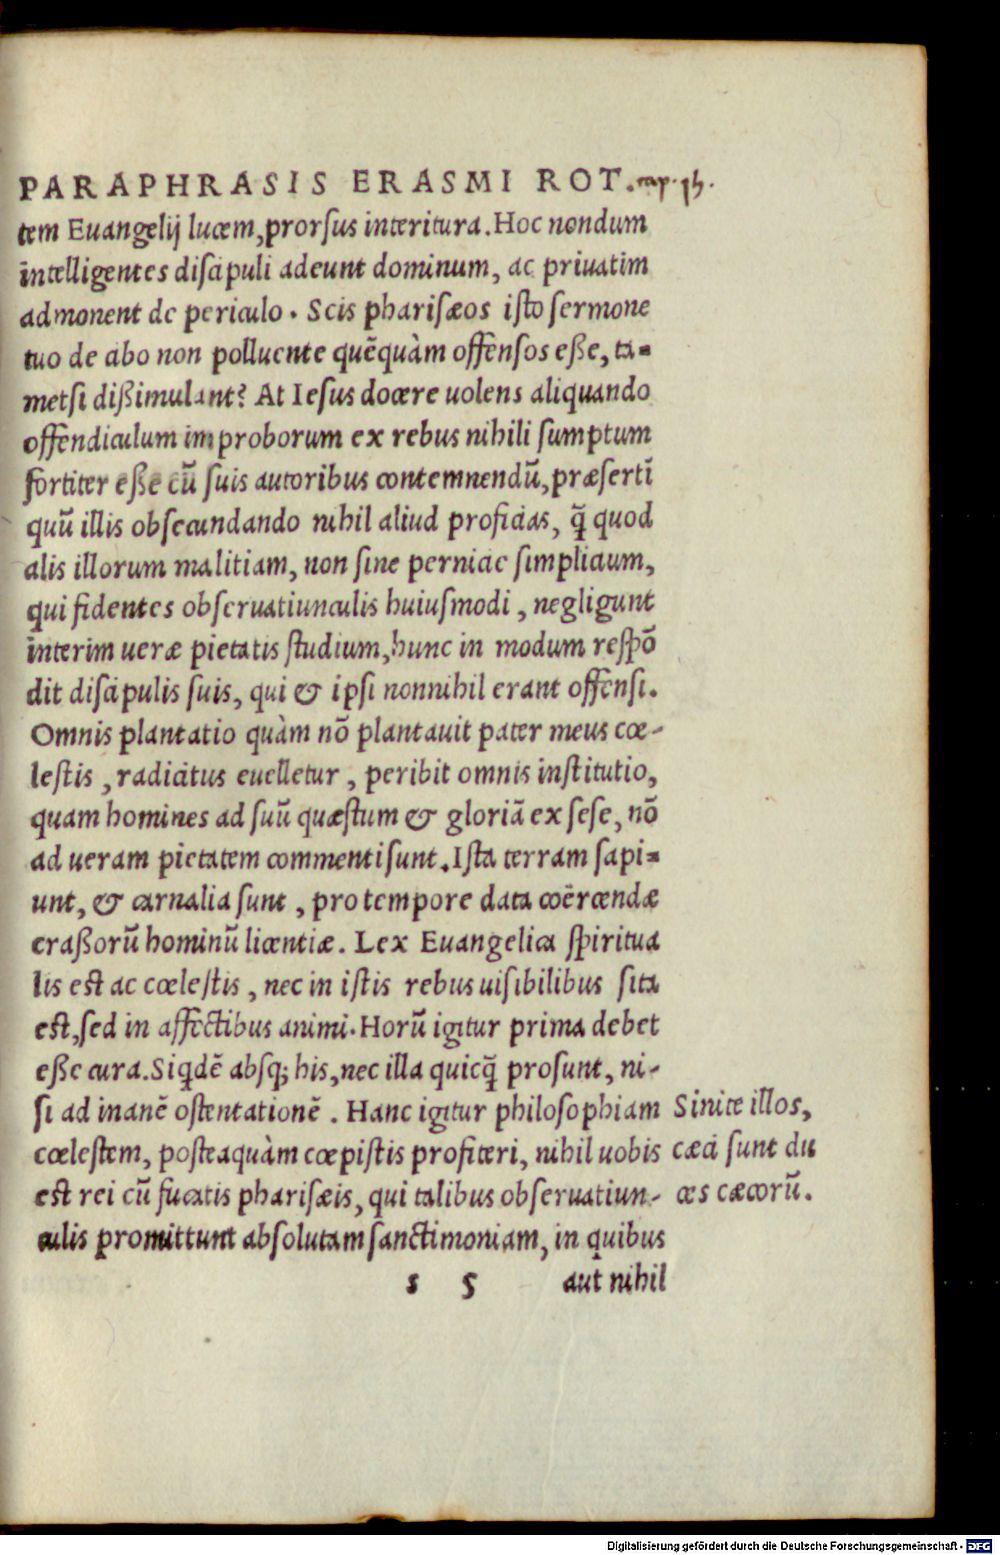 PARAPHRASIS ERASMI ROT.
tem Euangelij lucem, prorsus interitura. Hoc nondum
intelligentes discipuli adeunt dominum, ac priuatim
admonent de periculo. Scis pharisæos isto sermone
tuo de cibo non polluente quēquàm offensos eße, ta=
metsi dißimulant? At Iesus docere uolens aliquando
offendiculum improborum ex rebus nihili sumptum
fortiter eße cū suis autoribus contemnendū, præsertī
quū illis obsecundando nihil aliud proficias, q̄ quod
alis illorum malitiam, non sine pernicie simplicium,
qui fidentes obseruatiunculis huiusmodi, negligunt
interim ueræ pietatis studium, hunc in modum respō
dit discipulis suis, qui & ipsi nonnihil erant offensi.
Omnis plantatio quàm nō plantauit pater meus cœ-
lestis, radicitus euelletur, peribit omnis institutio,
quam homines ad suū quæstum & gloriā ex sese, nō
ad ueram pietatem commenti sunt. Ista terram sapi=
unt, & carnalia sunt, pro tempore data coërcendæ
craßiorū hominū licentiæ. Lex Euangelica spiritua
lis est ac cœlestis, nec in istis rebus uisibilibus sita
est, sed in affectibus animi. Horū igitur prima debet
eße cura. Siqdē absq; his, nec illa quicq̄ prosunt, ni-
si ad inanē ostentationē. Hanc igitur philosophiam
cœlestem, posteaquàm cœpistis profiteri, nihil uobis
est rei cū fucatis pharisæis, qui talibus obseruatiun-
culis promittunt absolutam sanctimoniam, in quibus
s 5 aut nihil
Sinite illos,
cæci sunt du
ces cæcorū.
Digitalisierung gefördert durch die Deutsche Forschungsgemeinschaft - DFG